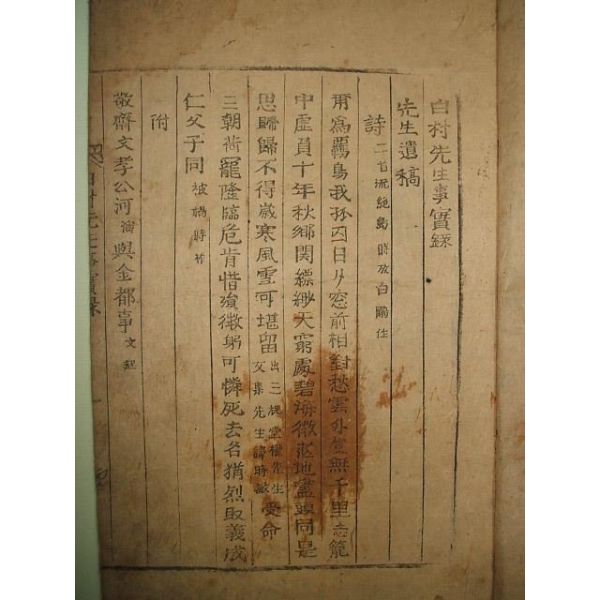 白村先生事實錄
先生遺稿
詩 二首流絶島時放白鷴作
甭爲羈鳥我孤囚日夕窓前相對愁雲外豈無千里志籠
中虛負十年秋鄉関縹緲天窮處碧海微茫地盡頭同是
思歸歸不得歲寒風雪可堪留 出二堂權先生文集先生諱時敏 受命
三朝荷寵隆臨危肯惜殞微躬可憐死去名猶烈取義成
仁父子同 被禍時
附
敬齋文孝公河演與金都事文起
白村先生事實錄